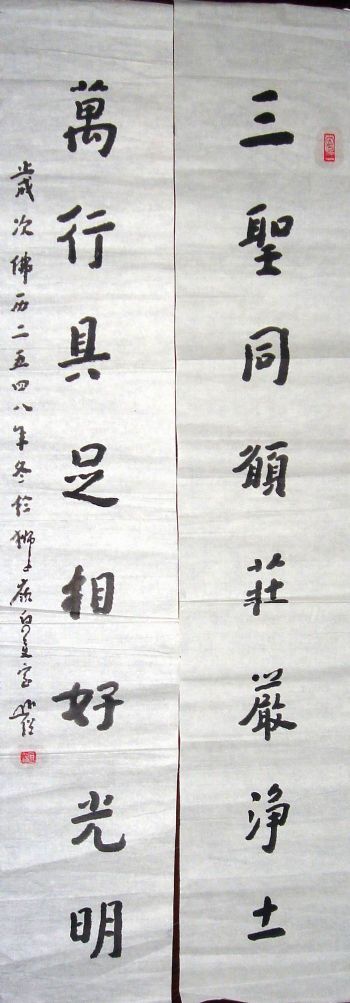 三聖同願莊嚴淨土
萬行具足相好光明
歲次佛历二五四八年冬於狮子岩